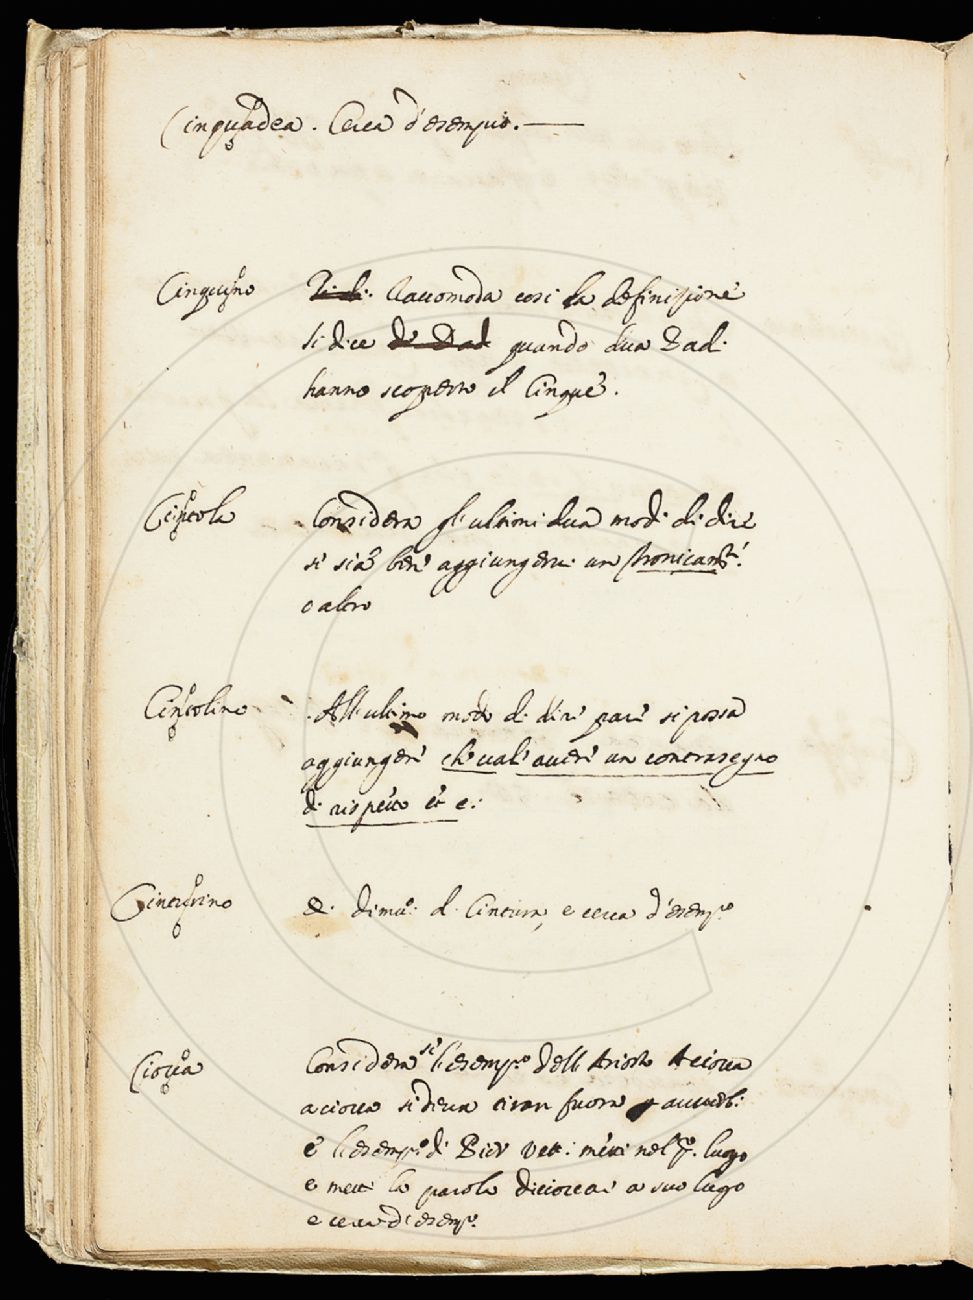 Cinquadea. Cerca d'esempio.
Cinquino Raccomoda cosi la definizione
si dice quando dua Dadi
hanno scoperto il Cinque.
Cintola Considera gl'ultimi dua modi di dire
se sia bene aggiungervi un
o altro
Cintolino All'ultimo modo di dire pare si possa
aggiungere che vale avere un contrasegno
di rispetto et e.
Cinturino È dimi: di Cintura, e cerca d'esemp.o
Ciocca Considera se l'esemp.o dell Ariosto A ciocca
a ciocca si deva tirar fuora
e l'esemp.o di Pier Vett: metti nel p.o luogo
e metti la parola a suo luogo
e cerca d'esemp.o